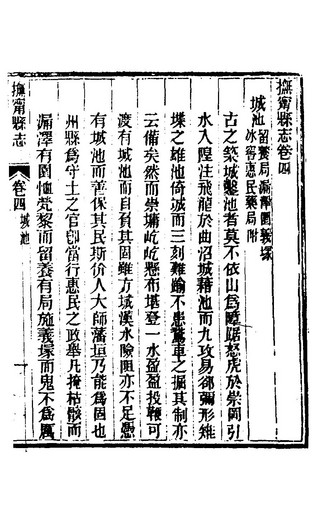 撫甯縣志卷四
城池 留養局 漏澤園 義塚
冰窖 惠民藥局 附
古之築城鑿池者莫不依山爲障踞怒虎於崇岡引
水入隍注飛龍於曲沼城藉池而九攻易卻彌形雉
堞之雄池倚城而三刻難踰不患鵞車之掘其制亦
云備矣然而崇墉屹屹懸布堪登一水盈盈投鞭可
渡有城池而自負其固雖方城漢水險阻亦不足憑
有城池而善保其民斯价人大師藩垣乃能爲固也
州縣爲守土之官卽當行惠民之政舉凡掩枯骸而
漏澤有園恤煢黎而留養有局施義塚而鬼不爲厲
撫甯縣志
卷四 城池